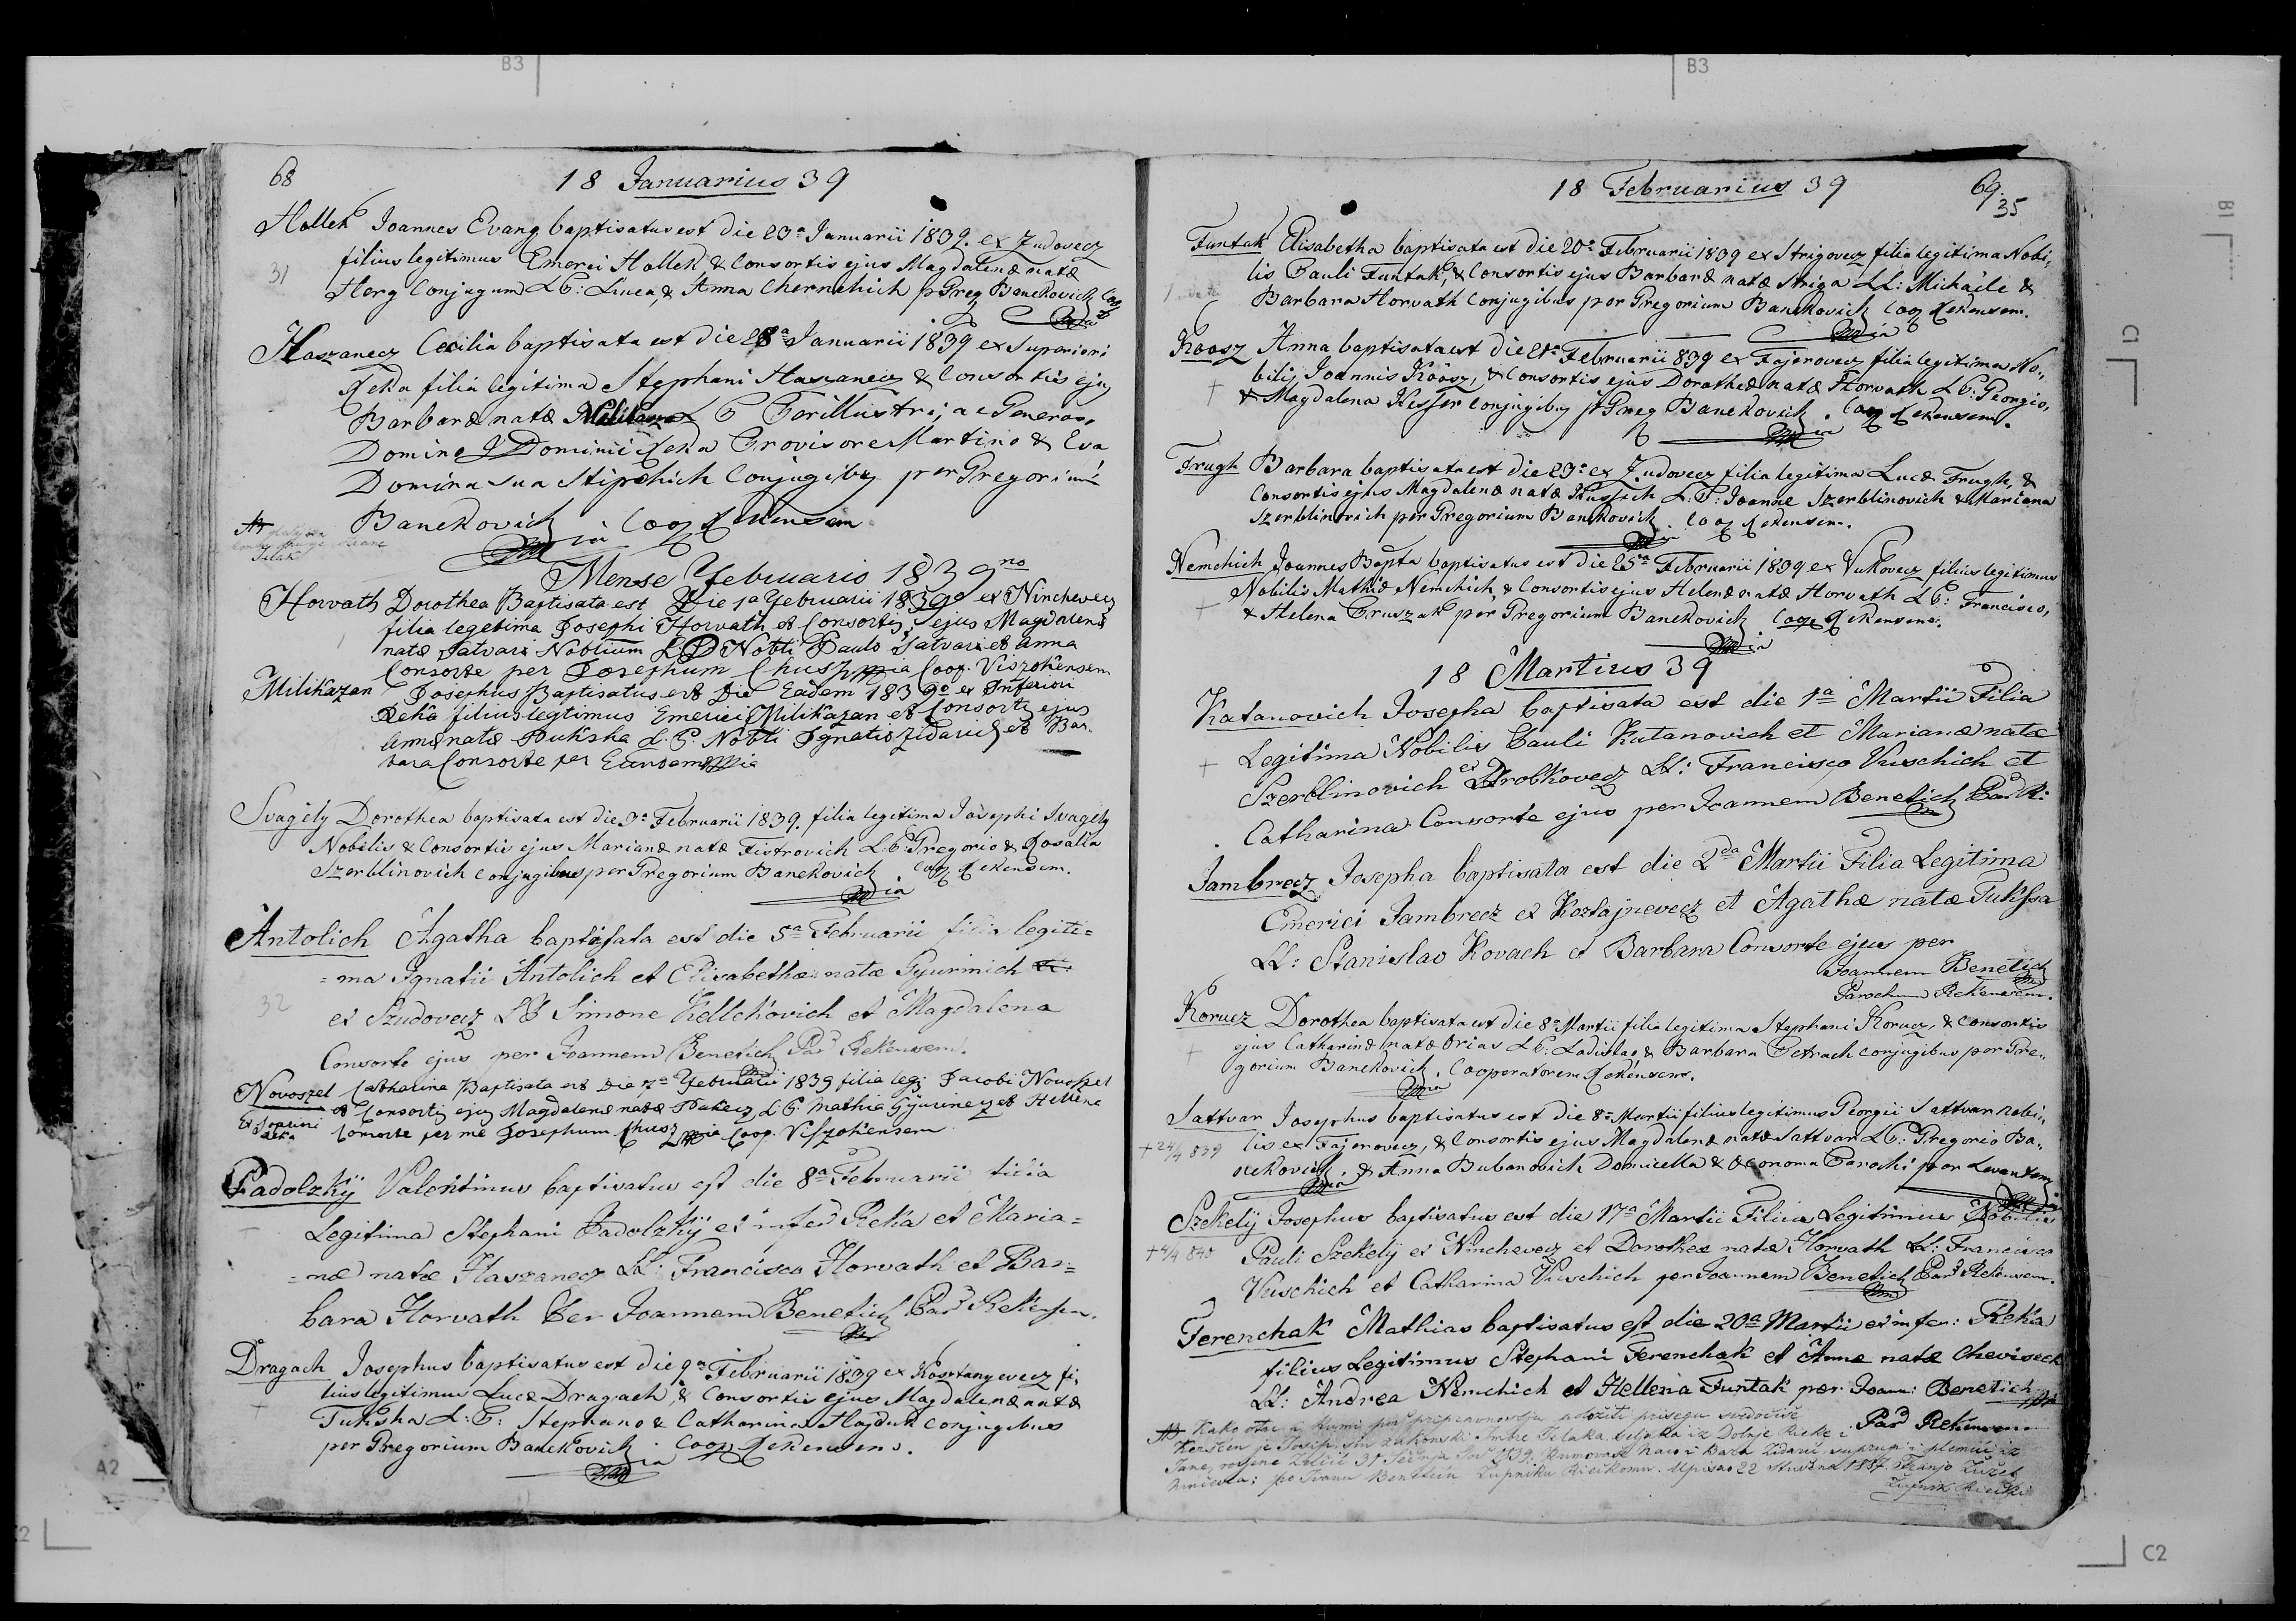 B3
B3
B1
C1
A2
C2
68
18 Januarius 39
Hallek Joannes Evang baptisatus est die 23a Januarii 1839. ex Zudovecz
31
filius legitimus Emerici Hallek & Consortis ejus Magdalenæ natæ
Herg Conjugum LP: Luca, & Anna Chernchich p Greg Banekovich Coop
Haszanecz Cecilia baptisata est die 28a Januarii 1839 ex Superiori
Reka filia legitima Stephani Haszanecz & Consortis ejus
Barbaræ natæ P Perillustri, ac Generoso
Domino Dominii Reka Provisore Martino & Eva
Domina sua Stipchich Conjugibus per Gregorium
Banekovich Coop Rekensem
Mense Februario 1839no
Horvath Dorothea Baptisata est Die 1a Februarii 1839o ex Ninchevecz
filia legetima Josephi Horvath et Consortis ejus Magdalenæ
natæ Satvari Nobilium LP Nobli Paulo Satvari et Anna
Consorte per Josephum Chusz mpria Coop. Viszokensem
Milikazan Josephus Baptisatus est Die Eadem 1839o ex Inferiori
Reka filius legtimus Emerici Milikazan et Consortis ejus
Annæ natæ Pukska L.P. Nobli Ignatio Zidarich et Bar-
bara Consorte per Eundem mpria
Svagely Dorothea baptisata est die 3a Februarii 1839. filia legitima Josephi Svagely
Nobilis & Consortis ejus Marianæ natæ Fistrovich L.P: Gregorio & Rosalia
Szerblinovich conjugibus per Gregorium Banekovich Coop Rekensem.
Antolich Agatha baptisata est die 5a Februarii filia legiti=
=ma Ignatii Antolich et Elisabethæ natæ Gyurinich
32
ex Szudovecz LP Simone Kellekovich et Magdalena
Consorte ejus per Joannem Benetich Par Rekensem.
Novoszel Catharina Baptisata est Die 7a Februarii 1839 filia legi Jacobi Novoszel
et Consortis ejus Magdalenæ natæ Pukecz L.P. Mathia Gyurinecz et Hellena
Consorte per me Josephum Chusz mpria Coop. Viszokensem
Padolzkÿ Valentinus baptisatus est die 8a Februarii filia
Legitima Stephani Padolzkÿ ex infer Reka et Maria=
=næ natæ Haszanecz LL: Francisco Horvath et Bar=
bara Horvath Per Joannem Benetich Par Rekensem.
Dragach Josephus baptisatus est die 9a Februarii 1839 ex Kostanyevecz fi,
lius legitimus Lucæ Dragach, & Consortis ejus Magdalenæ natæ
Tuksha L:P: Stephano & Catharina Hajduk conjugibus
per Gregorium Banekovich Coop Rekensem.
18 Februarius 39
69.
35
Funtak Elisabetha baptisata est die 20a Februarii 1839 ex Strigovecz filia legitima Nobi,
lis Pauli Funtak, & Consortis ejus Barbaræ natæ Striga LL: Michaele &
Barbara Horvath Conjugibus per Gregorium Banekovich Coop Rekensem.
Koosz Anna baptisata est die 21a Februarii 839 ex Fajerovecz filia legitima No,
bilis Joannis Köösz, & Consortis ejus Dorotheæ natæ Horvath LP: Georgio,
& Magdalena Kesser conjugibus p Greg Banekovich. Coop Rekensem.
Frugh Barbara baptisata est die 23a ex Zudovecz filia legitima Lucæ Frugh, &
Consortis ejus Magdalenæ natæ L:P: Joanne Szerblinovich & Mariana
Szerblinovich per Gregorium Banekovich. Coop Rekensem.
Nemchich Joannes Bapta baptisatus est die 25a Februarii 1839 ex Vukovecz filius legitimus
Nobilis Mathiæ Nemchich & Consortis ejus Helenæ natæ Horvath LP: Francisco,
& Helena Pruszak per Gregorium Banekovich Coop Rekensem.
18 Martius 39
Katanovich Josepha baptisata est die 1a Martii Filia
Legitima Nobilis Pauli Katanovich et Marianæ natæ
Szerblinovich ex Drobkovecz LL: Francisco Vuschich et
Catharina Consorte ejus per Joannem Benetich Par R:
Jambrecz Josepha baptisata est die 2da Martii Filia Legitima
Emerici Jambrecz ex Koztajnevecz et Agathæ natæ Tukssa
LL: Stanislao Kovach et Barbara Consorte ejus per
Joannem Benetich
Parochum Rekensem.
Korucz Dorothea baptisata est die 8a Martii filia legitima Stephani Korucz, & Consortis
ejus Catharinæ natæ Orias LP: Ladislao, & Barbara Petrach conjugibus per Gre,
gorium Banekovich. Cooperatorem Rekensem.
Sattvar Josephus baptisatus est die 8a Martii filius legitimus Georgii Sattvar Nobi,
+ 24/4 839
lis ex Fajerovecz, & Consortis ejus Magdalenæ natæ Sattvar LP: Gregorio Ba,
nekovich, & Anna Bubanovich Domicella & Oeconoma Parochi per Levantem
Szekelÿ Josephus baptisatus est die 17a Martii Filius Legitimus Nobilis
+ 4/4 840
Pauli Szekelÿ ex Ninchevecz et Dorotheæ natæ Horvath LL: Francisco
Vuschich et Catharina Vuschich per Joannem Benetich Par Rekensem.
Ferenchak Mathias baptisatus est die 20a Martii ex infer: Reka
filius Legitimus Stephani Ferenchak et Annæ natæ Cheviseck
LL: Andrea Nemchich et Hellena Funtak per Joann: Benetich
Par Rekensem
Kako otac i kumi pripravnovolju položiti prisegu svedočiše
Keršten je Josip sin zakonski Imbre Pilaka seljaka iz Dolnje Rieke i
Jane, rodjene 31 Siečnja 1839. Kumovahu Naco i Bara Zidarić, supruzi i plemići iz
po Ivanu Benetiću župniku Riečkomu. Upisao 22 1857. Franjo
Župnik Riečki